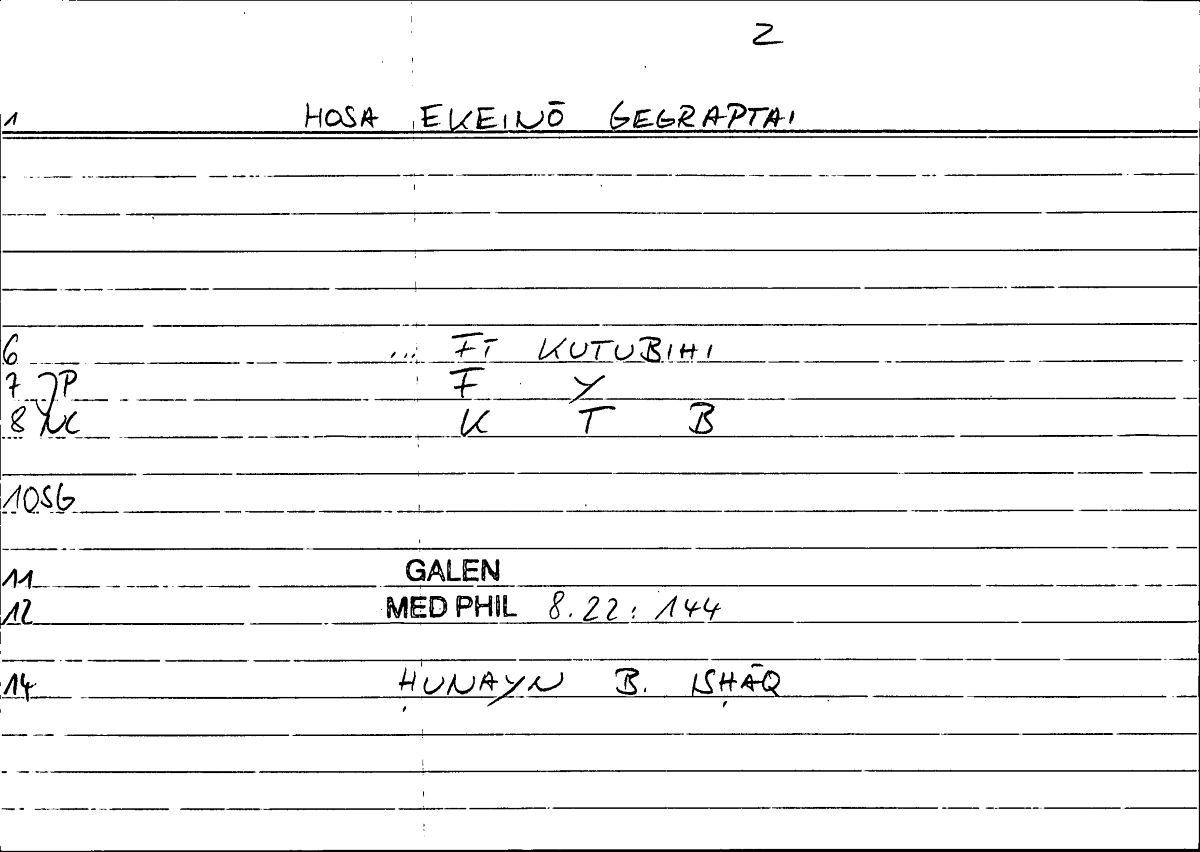 2
1 HOSA EKEINŌ GEGRAPTAI
6 ... FĪ KUTUBIHI
7 JP F Y
8 NC K T B
10SG
11 GALEN
12 MED PHIL 8.22: 144
14 ḤUNAYN B. ISḤĀQ